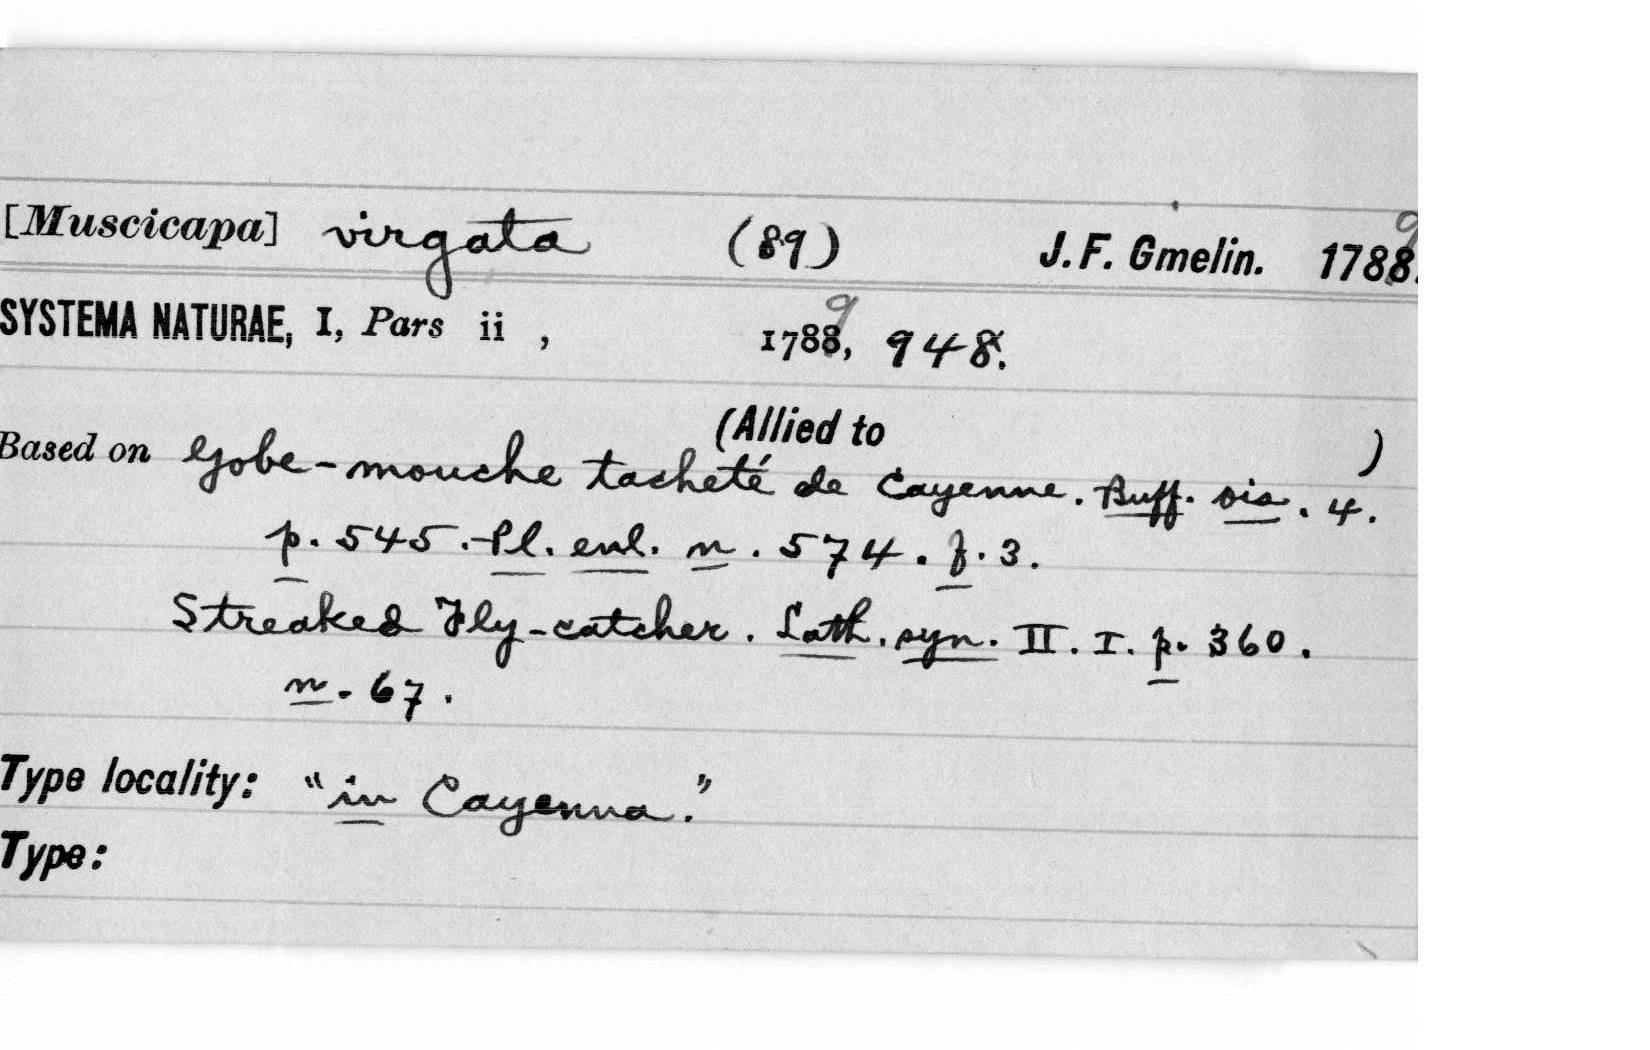 [Muscicapa] virgata (89) J. F. Gmelin. 1788. 9
SYSTEMA NATURAE, I, Pars ii , 1788, 9 948.
(Allied to )
Based on Gobe-mouche tacheté de Cayenne. Buff. ois. 4.
p. 545. Pl. enl. n. 574. f. 3.
Streaked Fly-catcher. Lath. syn. II. I. p. 360.
n. 67.
Type locality: "in Cayenna."
Type: